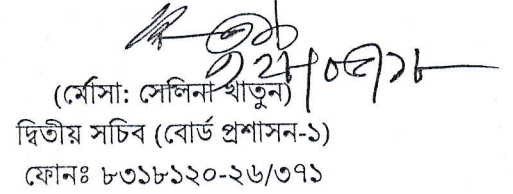 (মোসা: সেলিনা খাতুন)
দ্বিতীয় সচিব (বোর্ড প্রশাসন-১)
ফোনঃ ৮৩১৮১২০-২৬/৩৭১